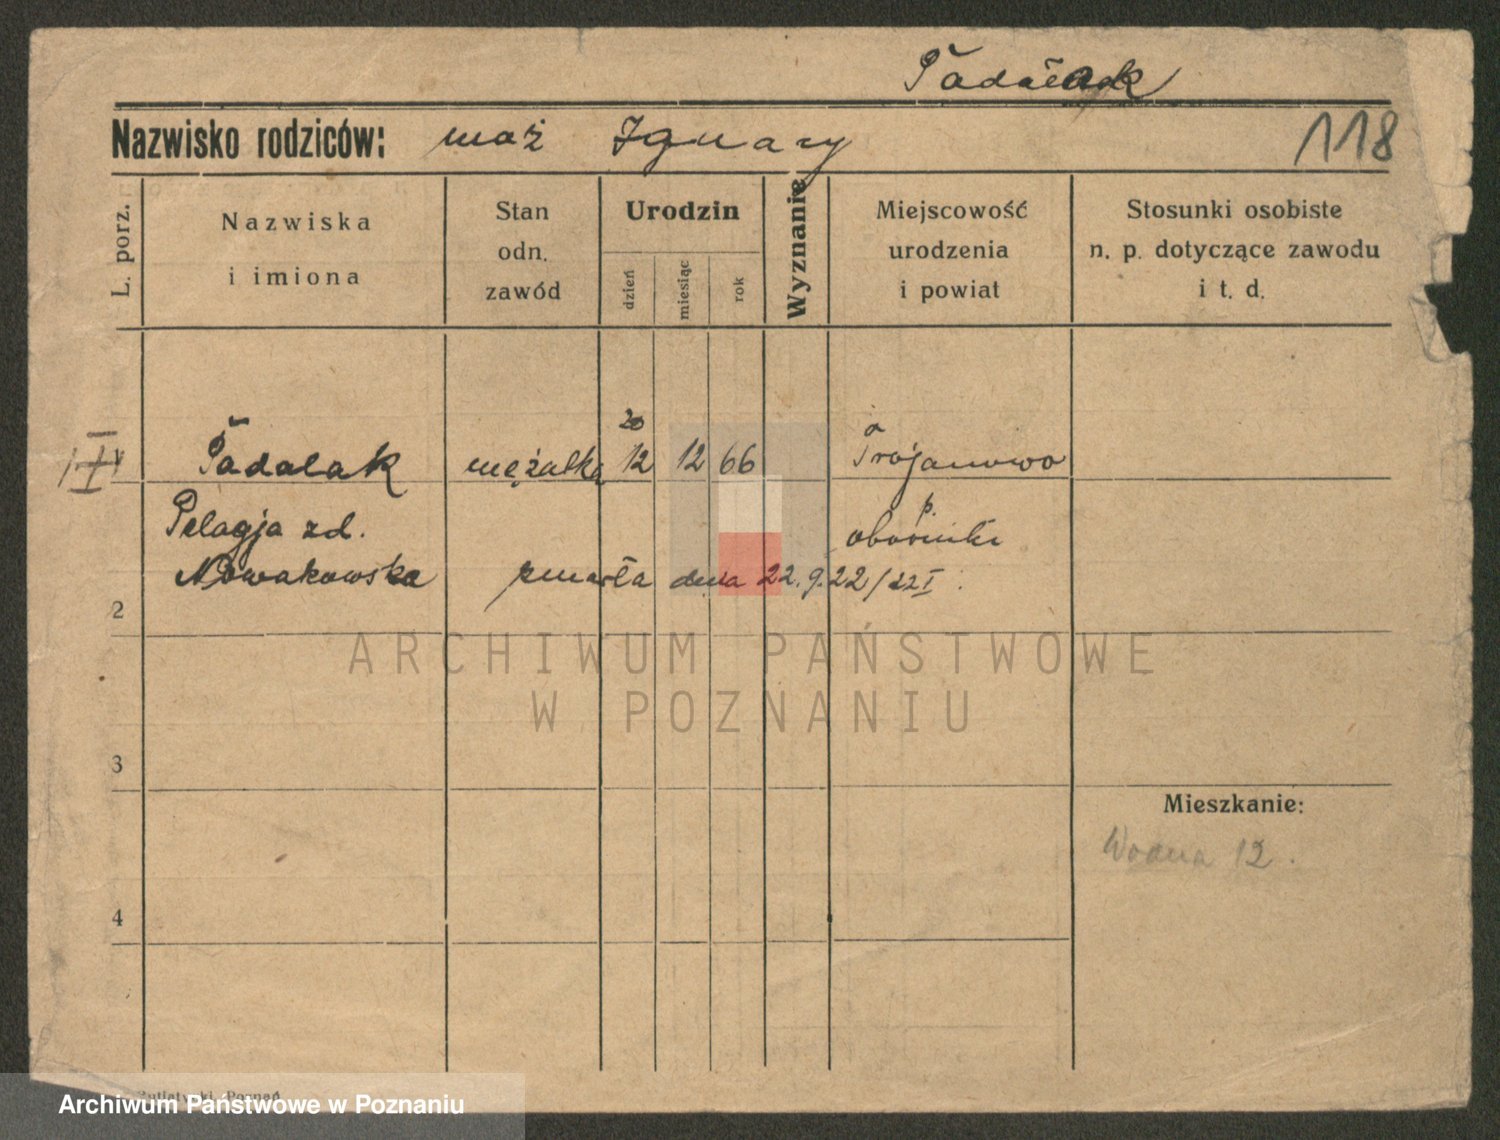 Tadalak
Nazwisko rodziców: mąż Ignacy 118
L. porz.
Nazwiska
i imiona
Stan
odn.
zawód
Urodzin
dzień
miesiąc
rok
Wyznanie
Miejscowość
urodzenia
i powiat
Stosunki osobiste
n. p. dotyczące zawodu
i t. d.
20
Tadalak mężatka 12 12 66 Trojanowo
Pelagja zd. p.
oborniki
Nowakowska zmarła dnia 22.9.22
2
ARCHIWUM PAŃSTWOWE
W POZNANIU
3
Mieszkanie:
Wodna 12.
4
Archiwum Państwowe w Poznaniu